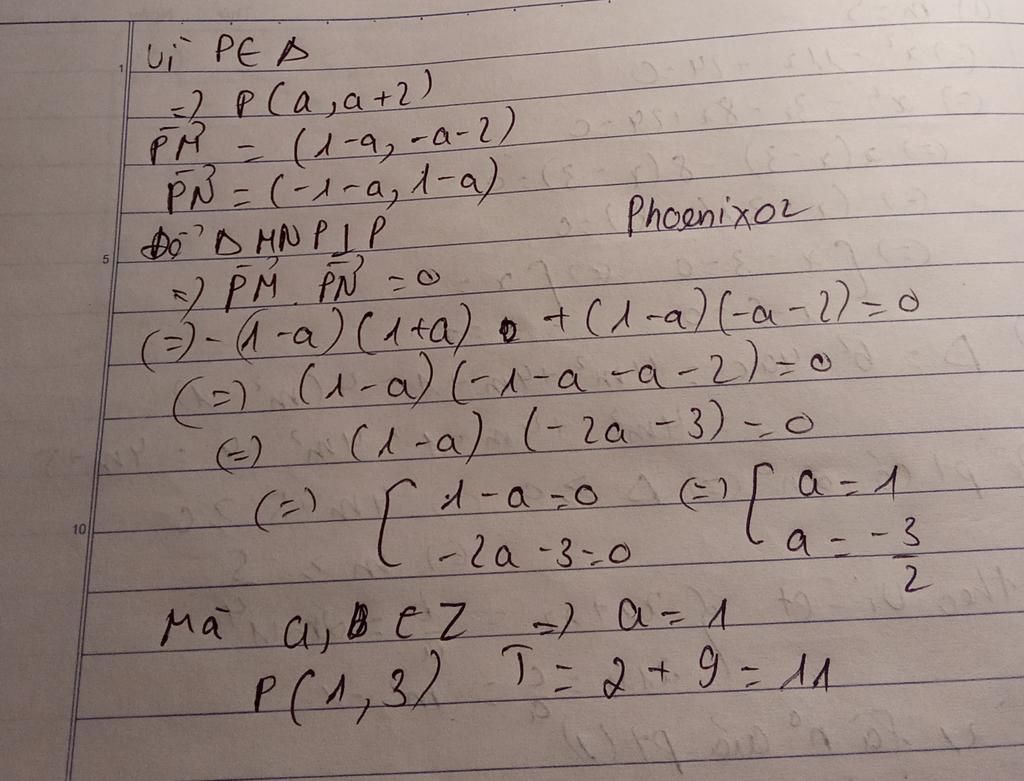 Vì P∈Δ
=) P(a,a+2)
PM = (1-a,-a-2)
PN = (-1-a,1-a)
Phoenix02
Δ MNP⊥P
=) PM . PN = 0
(=) -(1-a)(1+a) + (1-a)(-a-2)=0
(=) (1-a)(-1-a-a-2)=0
(=) (1-a)(-2a-3)=0
(=) [ 1-a=0 (=) [ a=1
-2a-3=0 a=-3/2
Mà a,B∈Z =) a=1
P(1,3) T=2+9=11